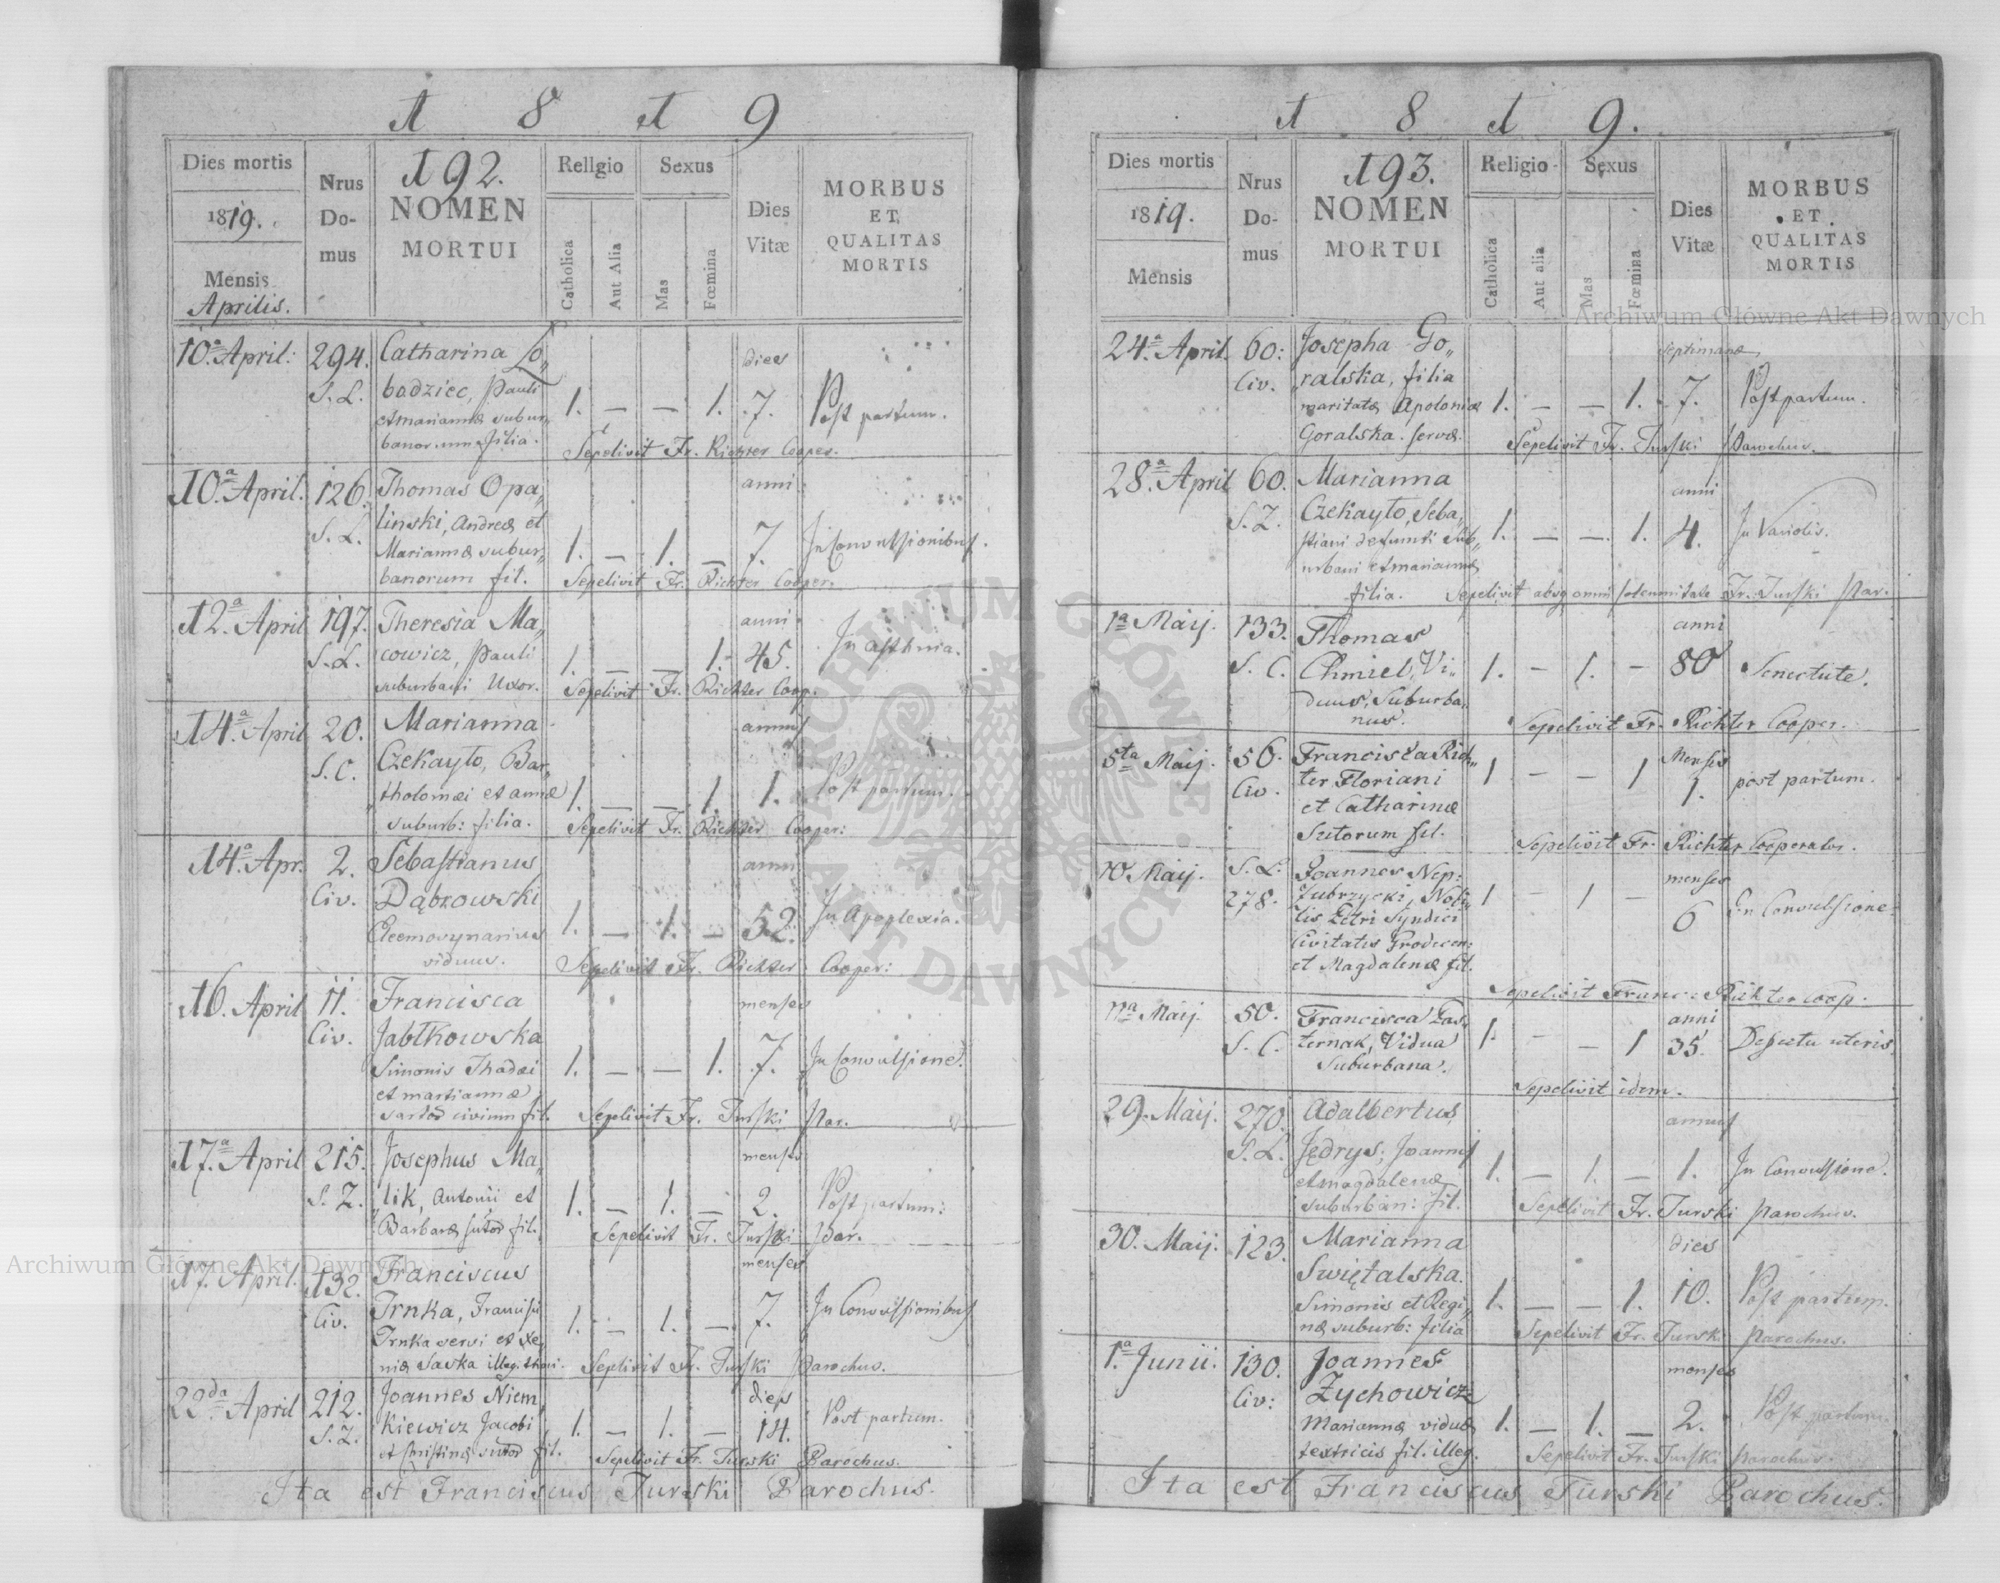 1 8 1 9
192.
Dies mortis
1819.
Mensis
Aprilis.
Nrus
Do-
mus
NOMEN
MORTUI
Religio
Catholica
Aut Alia
Sexus
Mas
Fœmina
Dies
Vitæ
MORBUS
ET
QUALITAS
MORTIS
10.a April: 294. Catharina Lo„ dies
S. L. badziec, Pauli 1. — — 1. 7. Post partum.
et mariannæ subur„
banorum filia. Sepelivit Fr. Richter Cooper.
10.a April. 126. Thomas Opa„ anni
S. L. linski, Andreæ et 1. — 1. — 7. In Convulsionibus.
Mariannæ subur„
banorum fil. Sepelivit Fr. Richter Cooper.
12.a April 197. Theresia Ma„ anni
S. L. cowicz, Pauli 1. — — 1. 45. In asthma.
suburbani Uxor. Sepelivit Fr. Richter Coop.
14.a April 20. Marianna annus
S. C. Czekayto, Bar„
tholomæi et annæ 1. — — 1. 1. Post partum.
suburb: filia. Sepelivit Fr. Richter Cooper:
14.a Apr. 2. Sebastianus anni
Civ. Dąbrowski 1. — 1. — 52. In Apoplexia.
Eleemosynarius
viduus. Sepelivit Fr. Richter Cooper:
16. April 11. Francisca menses
Civ. Jabłkowska
Simonis Thadæi 1. — — 1. 7. In Convulsione.
et mariannæ
sartor civium fil. Sepelivit Fr. Turski Par.
17.a April 215. Josephus Ma„ menses
S. Z. lik, Antonii et 1. — 1. — 2. Post partum:
Barbaræ sutor fil. Sepelivit Fr. Turski Par.
17. April. 132. Franciscus menses
Civ. Trnka, Francisci 1. — 1. — 7. In Convulsionibus
Trnka servi et Xe„
niæ Savka illegit. Sepelivit Fr. Turski Parochus.
22da April 212. Joannes Niem„ dies
S. Z. kiewicz Jacobi 1. — 1. — 14. Post partum.
et Christinæ sutor fil. Sepelivit Fr. Turski Parochus.
Ita est Franciscus Turski Parochus.
1 8 1 9.
193.
Dies mortis
1819.
Mensis
Nrus
Do-
mus
NOMEN
MORTUI
Religio
Catholica
Aut alia
Sexus
Mas
Fœmina
Dies
Vitæ
MORBUS
ET
QUALITAS
MORTIS
24.a April. 60: Josepha Go„ septimanæ
Civ. ralska, filia 1. — — 1. 7. Post partum.
maritatæ Apoloniæ
Goralska servæ. Sepelivit Fr. Turski Parochus.
28.a April 60. Marianna anni
S. Z. Czekayto, Seba„ 1. — — 1. 4. In Variolis.
stiani defuncti Sub„
urbani et mariannæ
filia. Sepelivit absq omni solemnitate Fr. Turski Par.
1a Maij. 133. Thomas anni
S. C. Chmiel, Vi„ 1. — 1. — 80 Senectute.
duus, Suburba„
nus. Sepelivit Fr. Richter Cooper.
5ta Maij. 56. Francisca Rich„ Mensis
Civ. ter Floriani 1 — — 1 1. post partum.
et Catharinæ
Sutorum fil. Sepeliit Fr. Richter Cooperator.
10 Maij. S. L. Joannes Nep: menses
278. Zubrzycki, Nobi„ 1 — 1 — 6 In Convulsione.
lis Petri Syndici
Civitatis Grodecen:
et Magdalenæ fil. Sepelivit Franc: Richter Coop.
11a Maij. 50. Francisca Pas„ anni
S. C. ternak, Vidua 1. — — 1 35. Defectu uteris.
Suburbana. Sepelivit idem.
29. Maij. 270. Adalbertus annus
S. L. Jędrys, Joannis 1. — 1. — 1. In Convulsione.
et magdalenæ
suburban: fil. Sepelivit Fr. Turski Parochus.
30. Maij. 123. Marianna dies
Swiętalska
Simonis et Regi„ 1. — — 1. 10. Post partum.
næ suburb: filia Sepelivit Fr. Turski Parochus.
1.a Junii. 130. Joannes menses
Civ: Zychowicz
Mariannæ viduæ 1. — 1. — 2. Post partum.
textricis fil. illeg. Sepelivit Fr. Turski Parochus.
Ita est Franciscus Turski Parochus.
Archiwum Główne Akt Dawnych
Archiwum Główne Akt Dawnych
ARCHIWUM GŁÓWNE
AKT DAWNYCH